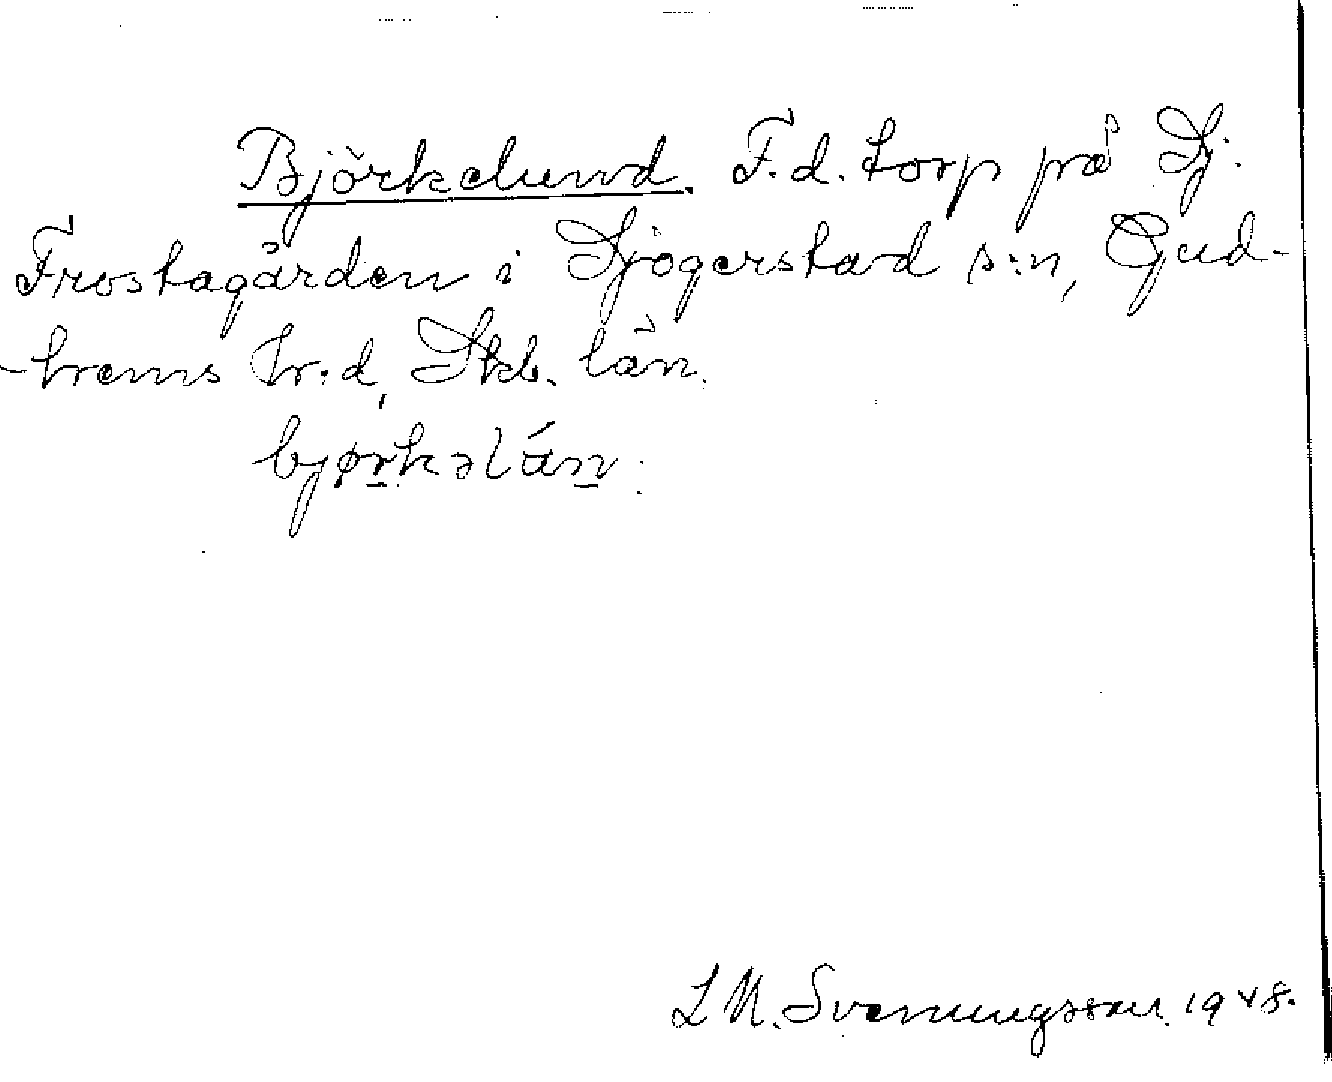 Björkelund. F.d. torp på Sj.
Frostagården i Sjogerstad s:n, Gud-
-hems hr:d, Skb. län.
bjørkəlán.
L M. Svenungsson 1948.